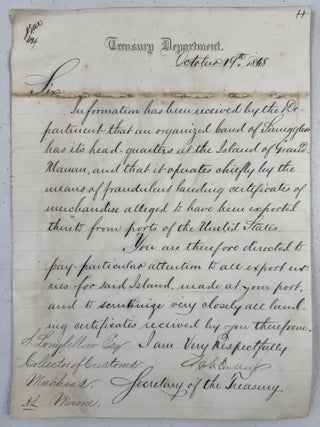 Treasury Department.
October 19th 1868
Sir
Information has been received by the De-
partment that an organized band of Smugglers
has its head quarters at the Island of Grand
Manan, and that it operates chiefly by the
means of fraudulent landing certificates of
merchandise alleged to have been exported
thereto from ports of the United States.
You are therefore directed to
pay particular attention to all export ent-
ries for said Island, made at your port,
and to scrutinize very closely all land-
ing certificates received by you therefrom.
I am Very Respectfully
Longfellow Esq
Collector of Customs
Secretary of the Treasury
Machias
Maine